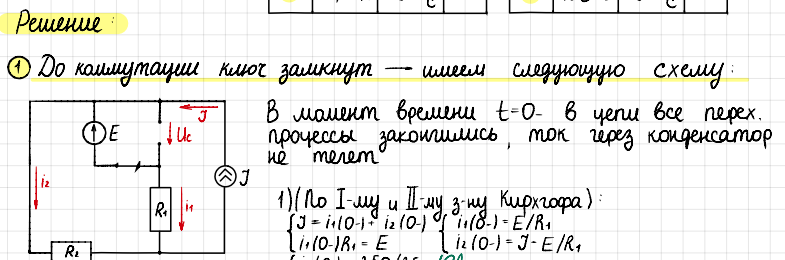 C
C
Решение:
1 До коммутации ключ замкнут — имеем следующую схему:
J
E
Uc
J
i2
R1
i1
R2
В момент времени t=0- в цепи все перех.
процессы закончились, ток через конденсатор
не течет
1)(По I-му и II-му з-ну Кирхгофа):
{J = i1(0-) + i2(0-) {i1(0-) = E/R1
{i1(0-)R1 = E {i2(0-) = J - E/R1